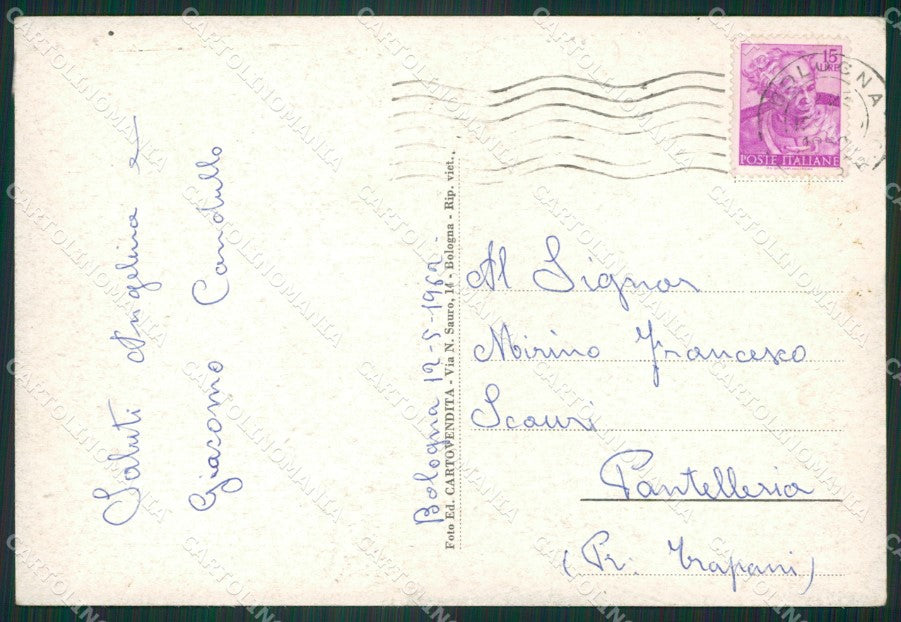 Saluti Angelina e
Giacomo Candullo
Bologna 12-5-1962
Foto Ed. CARTOVENDITA - Via N. Sauro, 14 - Bologna - Rip. viet..
15
LIRE
POSTE ITALIANE
BOLOGNA
Al Signor
Mirino Francesco
Scauri
Pantelleria
(Pr. Trapani)
CARTOLINOMANIA